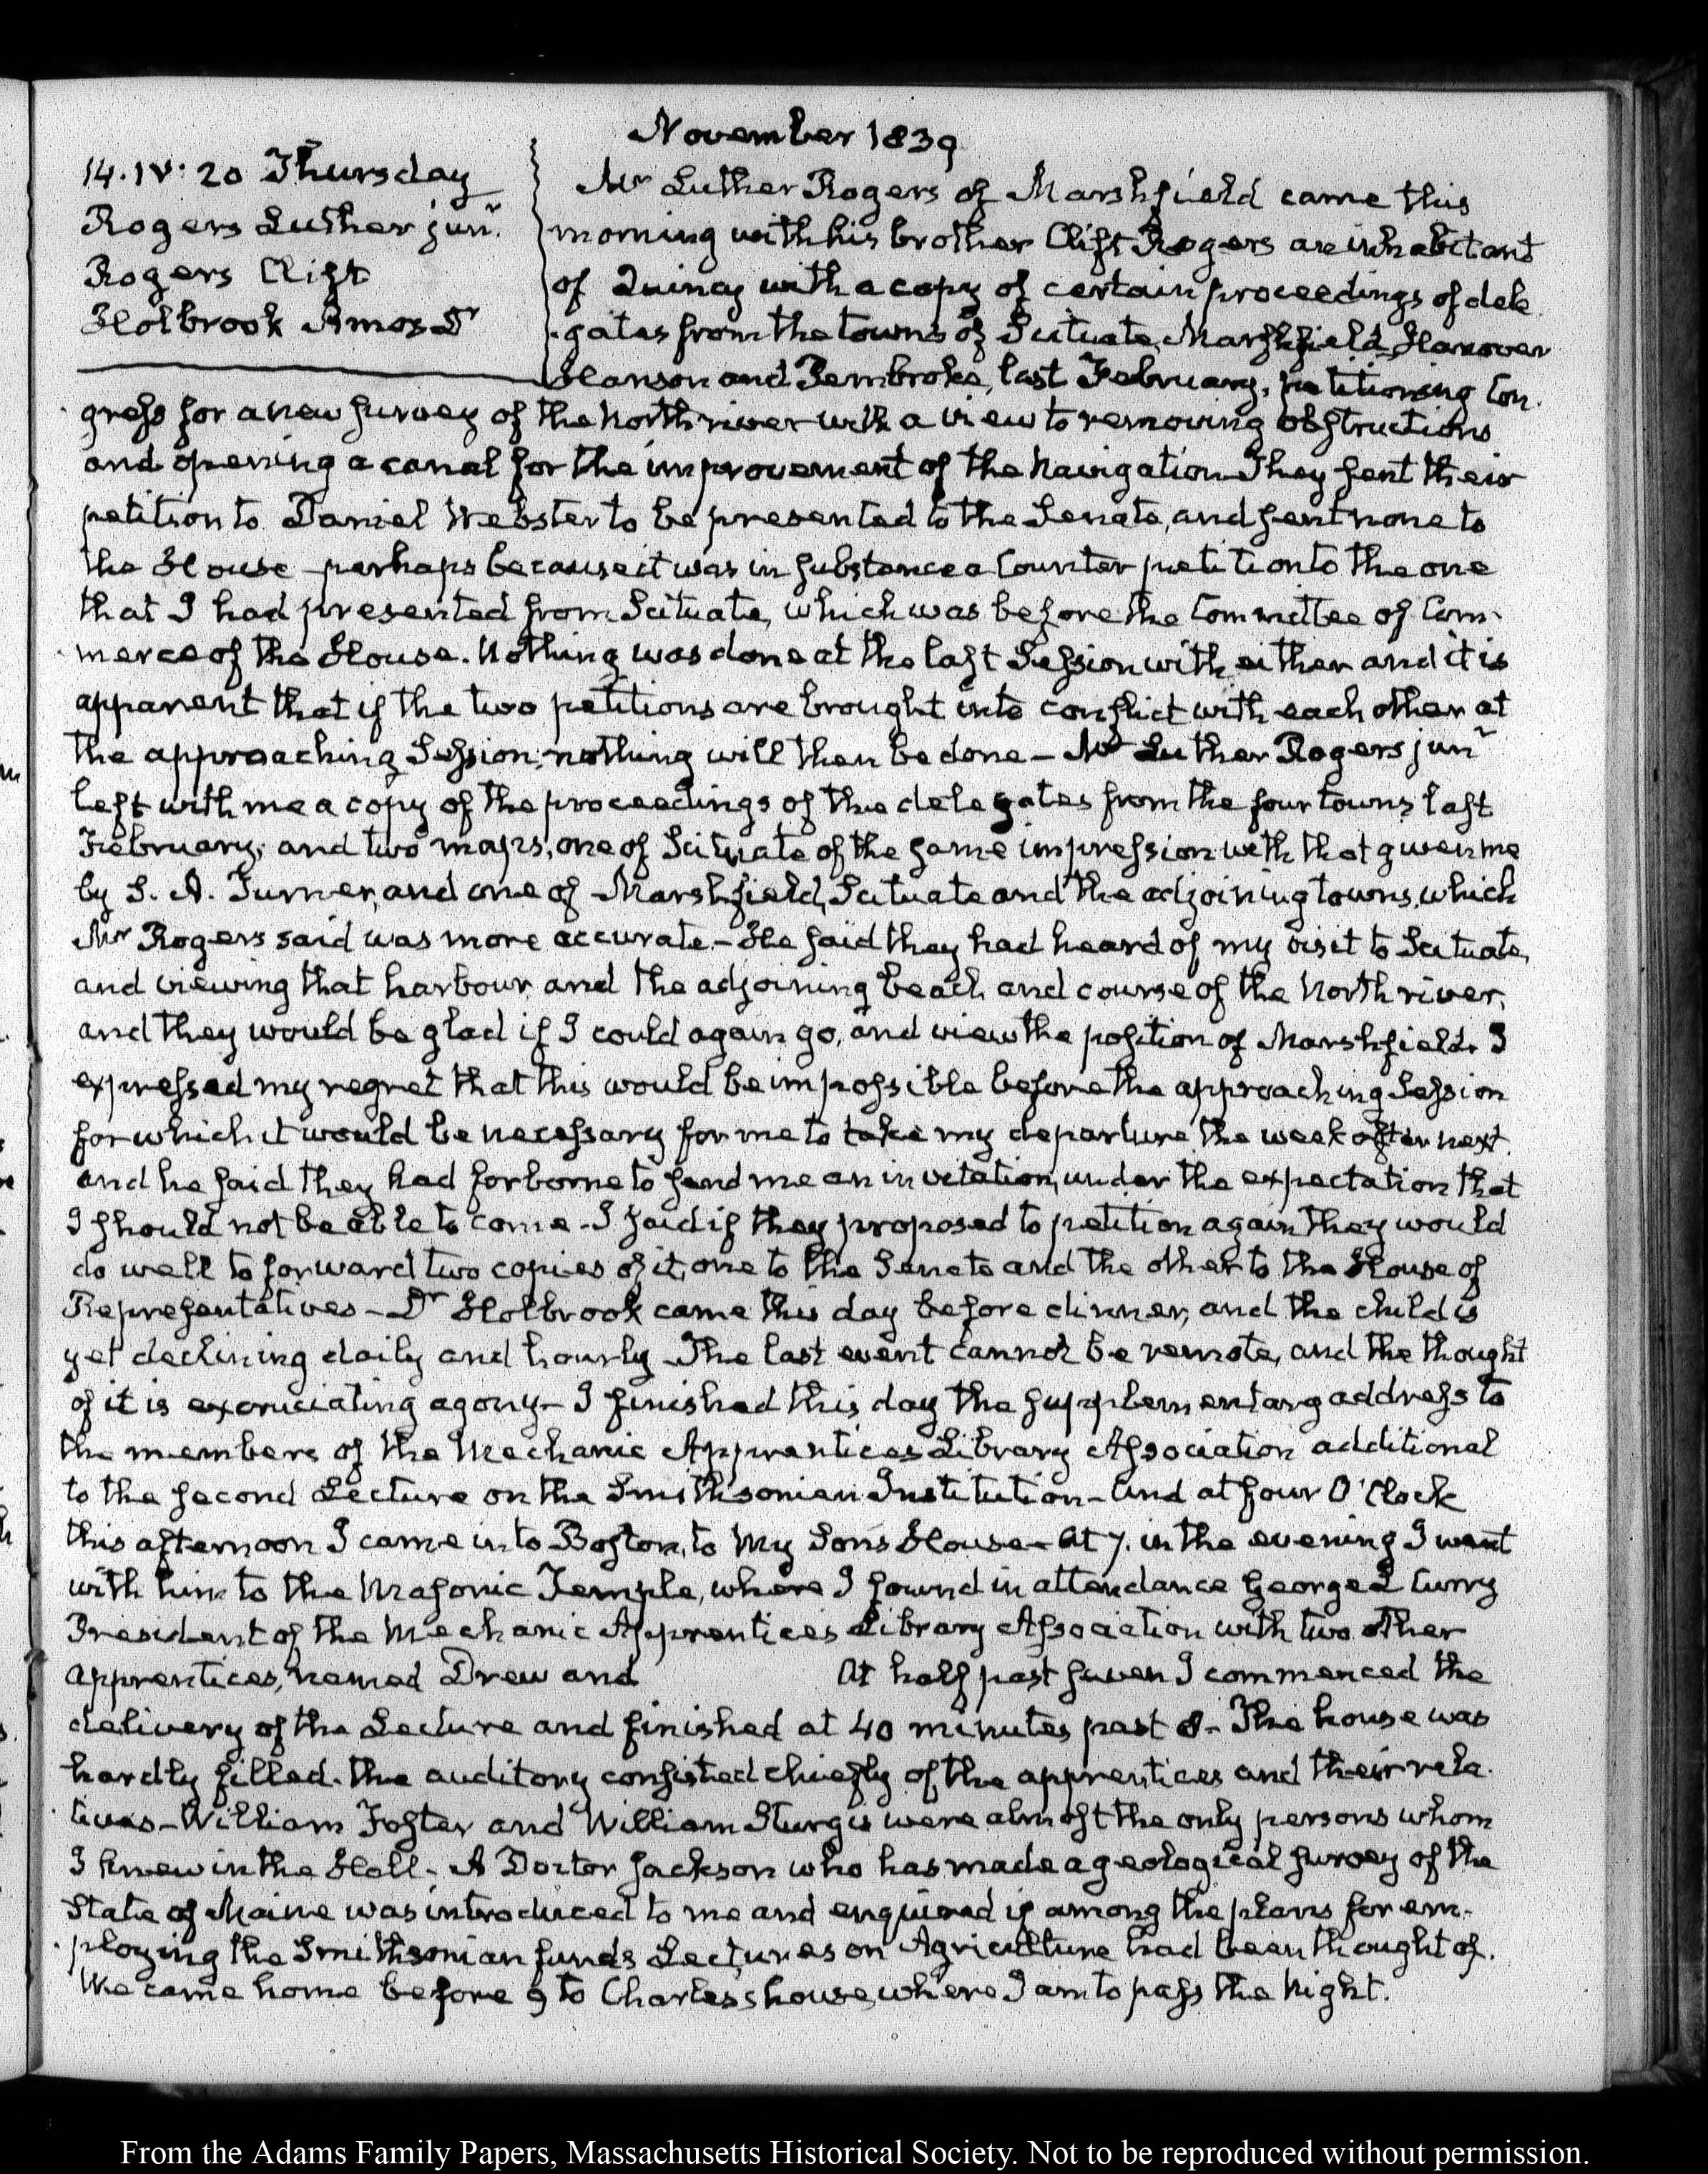 November 1839
14. IV: 20 Thursday
Rogers Luther junr.
Rogers Clift
Holbrook Amos Dr
Mr Luther Rogers of Marshfield came this
morning with his brother Clift Rogers an inhabitant
of Quincy with a copy of certain proceedings of dele
gates from the towns of Scituate, Marshfield, Hanover
Hanson and Pembroke, last February, petitioning Con-
gress for a new survey of the North river with a view to removing obstructions
and opening a canal for the improvement of the Navigation They sent their
petition to Daniel Webster to be presented to the Senate, and sent none to
the House - perhaps because it was in substance a Counter petition to the one
that I had presented from Scituate, which was before the Committee of Com-
merce of the House. Nothing was done at the last Session with either and it is
apparent that if the two petitions are brought into conflict with each other at
the approaching Session, nothing will then be done - Mr Luther Rogers junr
left with me a copy of the proceedings of the delegates from the four towns last
February; and two maps, one of Scituate of the same impression with that given me
by S. A. Turner, and one of Marshfield, Scituate and the adjoining towns, which
Mr Rogers said was more accurate. - He said they had heard of my visit to Scituate,
and viewing that harbour and the adjoining beach and course of the North river,
and they would be glad if I could again go, and view the position of Marshfield. I
expressed my regret that this would be impossible before the approaching Session
for which it would be necessary for me to take my departure the week after next.
and he said they had forborne to send me an invitation, under the expectation that
I should not be able to come - I said if they proposed to petition again they would
do well to forward two copies of it, one to the Senate and the other to the House of
Representatives - Dr Holbrook came this day before dinner, and the child is
yet declining daily and hourly The last event cannot be remote, and the thought
of it is excruciating agony - I finished this day the supplementary address to
the members of the Mechanic Apprentices Library Association additional
to the second Lecture on the Smithsonian Institution - and at four O'Clock
this afternoon I came into Boston, to my Sons House - At 7. in the evening I went
with him to the Masonic Temple, where I found in attendance George L Curry
President of the Mechanic Apprentices Library Association with two other
apprentices, named Drew and At half past seven I commenced the
delivery of the Lecture and finished at 40 minutes past 8 - The house was
hardly filled. the auditory consisted chiefly of the apprentices and their rela-
tives - William Foster and William Sturgis were almost the only persons whom
I knew in the Hall - A Doctor Jackson who has made a geological survey of the
State of Maine was introduced to me and enquired if among the plans for em-
ploying the Smithsonian funds Lectures on Agriculture had been thought of.
We came home before 9 to Charles's house, where I am to pass the Night.
From the Adams Family Papers, Massachusetts Historical Society. Not to be reproduced without permission.